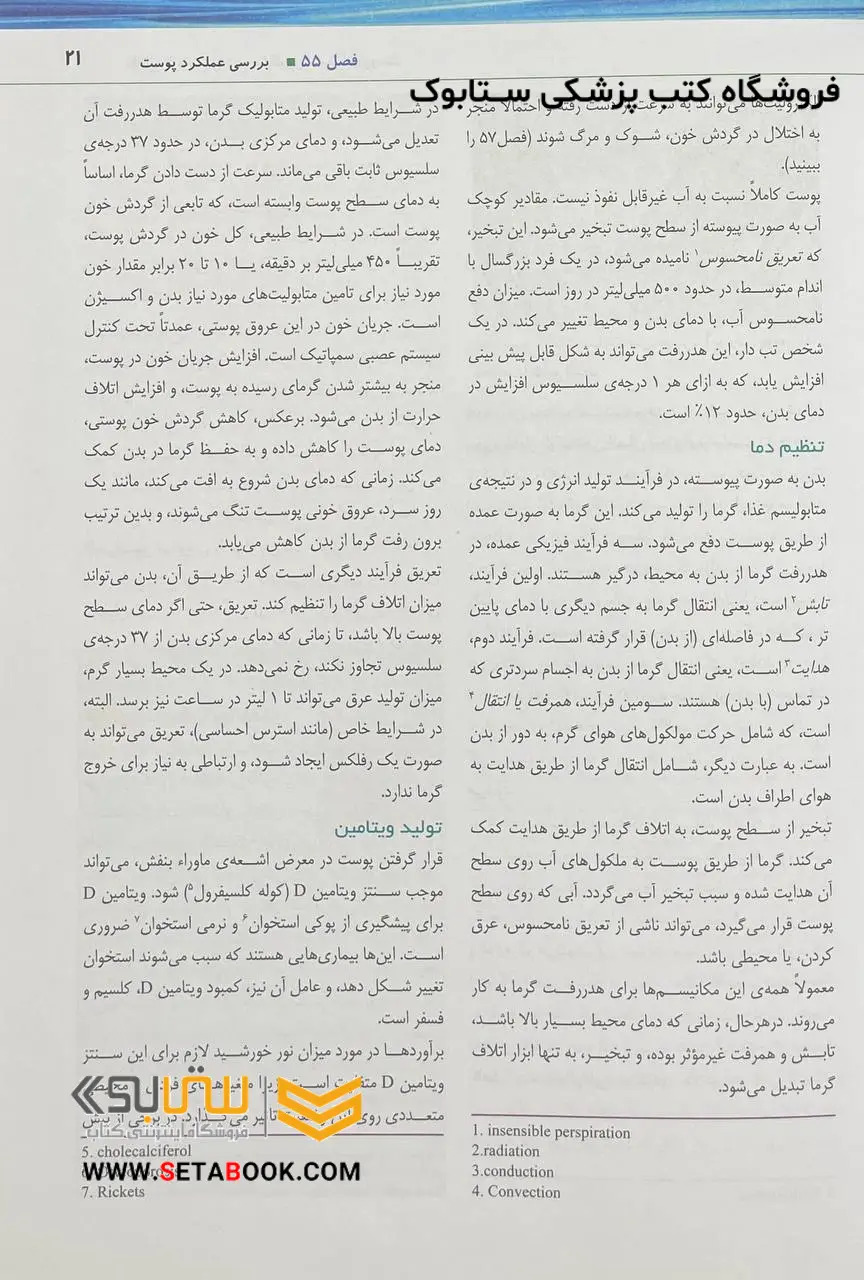 فصل ۵۵ ■ بررسی عملکرد پوست ۲۱
فروشگاه کتب پزشکی ستابوک
به اختلال در گردش خون، شوک و مرگ شوند (فصل۵۷ را
ببینید).
پوست کاملاً نسبت به آب غیرقابل نفوذ نیست. مقادیر کوچک
آب به صورت پیوسته از سطح پوست تبخیر می‌شود. این تبخیر،
که تعریق نامحسوس۱ نامیده می‌شود، در یک فرد بزرگسال با
اندام متوسط، در حدود ۵۰۰ میلی‌لیتر در روز است. میزان دفع
نامحسوس آب، با دمای بدن و محیط تغییر می‌کند. در یک
شخص تب دار، این هدررفت می‌تواند به شکل قابل پیش بینی
افزایش یابد، که به ازای هر ۱ درجه‌ی سلسیوس افزایش در
دمای بدن، حدود ۱۲٪ است.
تنظیم دما
بدن به صورت پیوسته، در فرآیند تولید انرژی و در نتیجه‌ی
متابولیسم غذا، گرما را تولید می‌کند. این گرما به صورت عمده
از طریق پوست دفع می‌شود. سه فرآیند فیزیکی عمده، در
هدررفت گرما از بدن به محیط، درگیر هستند. اولین فرآیند،
تابش۲ است، یعنی انتقال گرما به جسم دیگری با دمای پایین
تر ، که در فاصله‌ای (از بدن) قرار گرفته است. فرآیند دوم،
هدایت۳ است، یعنی انتقال گرما از بدن به اجسام سردتری که
در تماس (با بدن) هستند. سومین فرآیند، همرفت یا انتقال۴
است، که شامل حرکت مولکول‌های هوای گرم، به دور از بدن
است. به عبارت دیگر، شامل انتقال گرما از طریق هدایت به
هوای اطراف بدن است.
تبخیر از سطح پوست، به اتلاف گرما از طریق هدایت کمک
می‌کند. گرما از طریق پوست به ملکول‌های آب روی سطح
آن هدایت شده و سبب تبخیر آب می‌گردد. آبی که روی سطح
پوست قرار می‌گیرد، می‌تواند ناشی از تعریق نامحسوس، عرق
کردن، یا محیطی باشد.
معمولاً همه‌ی این مکانیسم‌ها برای هدررفت گرما به کار
می‌روند. درهرحال، زمانی که دمای محیط بسیار بالا باشد،
تابش و همرفت غیرمؤثر بوده، و تبخیر، به تنها ابزار اتلاف
گرما تبدیل می‌شود.
1. insensible perspiration
2.radiation
3.conduction
4. Convection
در شرایط طبیعی، تولید متابولیک گرما توسط هدررفت آن
تعدیل می‌شود، و دمای مرکزی بدن، در حدود ۳۷ درجه‌ی
سلسیوس ثابت باقی می‌ماند. سرعت از دست دادن گرما، اساساً
به دمای سطح پوست وابسته است، که تابعی از گردش خون
پوست است. در شرایط طبیعی، کل خون در گردش پوست،
تقریباً ۴۵۰ میلی‌لیتر بر دقیقه، یا ۱۰ تا ۲۰ برابر مقدار خون
مورد نیاز برای تامین متابولیت‌های مورد نیاز بدن و اکسیژن
است. جریان خون در این عروق پوستی، عمدتاً تحت کنترل
سیستم عصبی سمپاتیک است. افزایش جریان خون در پوست،
منجر به بیشتر شدن گرمای رسیده به پوست، و افزایش اتلاف
حرارت از بدن می‌شود. برعکس، کاهش گردش خون پوستی،
دمای پوست را کاهش داده و به حفظ گرما در بدن کمک
می‌کند. زمانی که دمای بدن شروع به افت می‌کند، مانند یک
روز سرد، عروق خونی پوست تنگ می‌شوند، و بدین ترتیب
برون رفت گرما از بدن کاهش می‌یابد.
تعریق فرآیند دیگری است که از طریق آن، بدن می‌تواند
میزان اتلاف گرما را تنظیم کند. تعریق، حتی اگر دمای سطح
پوست بالا باشد، تا زمانی که دمای مرکزی بدن از ۳۷ درجه‌ی
سلسیوس تجاوز نکند، رخ نمی‌دهد. در یک محیط بسیار گرم،
میزان تولید عرق می‌تواند تا ۱ لیتر در ساعت نیز برسد. البته،
در شرایط خاص (مانند استرس احساسی)، تعریق می‌تواند به
صورت یک رفلکس ایجاد شود، و ارتباطی به نیاز برای خروج
گرما ندارد.
تولید ویتامین
قرار گرفتن پوست در معرض اشعه‌ی ماوراء بنفش، می‌تواند
موجب سنتز ویتامین D (کوله کلسیفرول۵) شود. ویتامین D
برای پیشگیری از پوکی استخوان۶ و نرمی استخوان۷ ضروری
است. این‌ها بیماری‌هایی هستند که سبب می‌شوند استخوان
تغییر شکل دهد، و عامل آن نیز، کمبود ویتامین D، کلسیم و
فسفر است.
برآوردها در مورد میزان نور خورشید لازم برای این سنتز
ویتامین D
متعددی روی
5. cholecalciferol
7. Rickets
ستابوک
فروشگاه اینترنتی کتاب
WWW.SETABOOK.COM